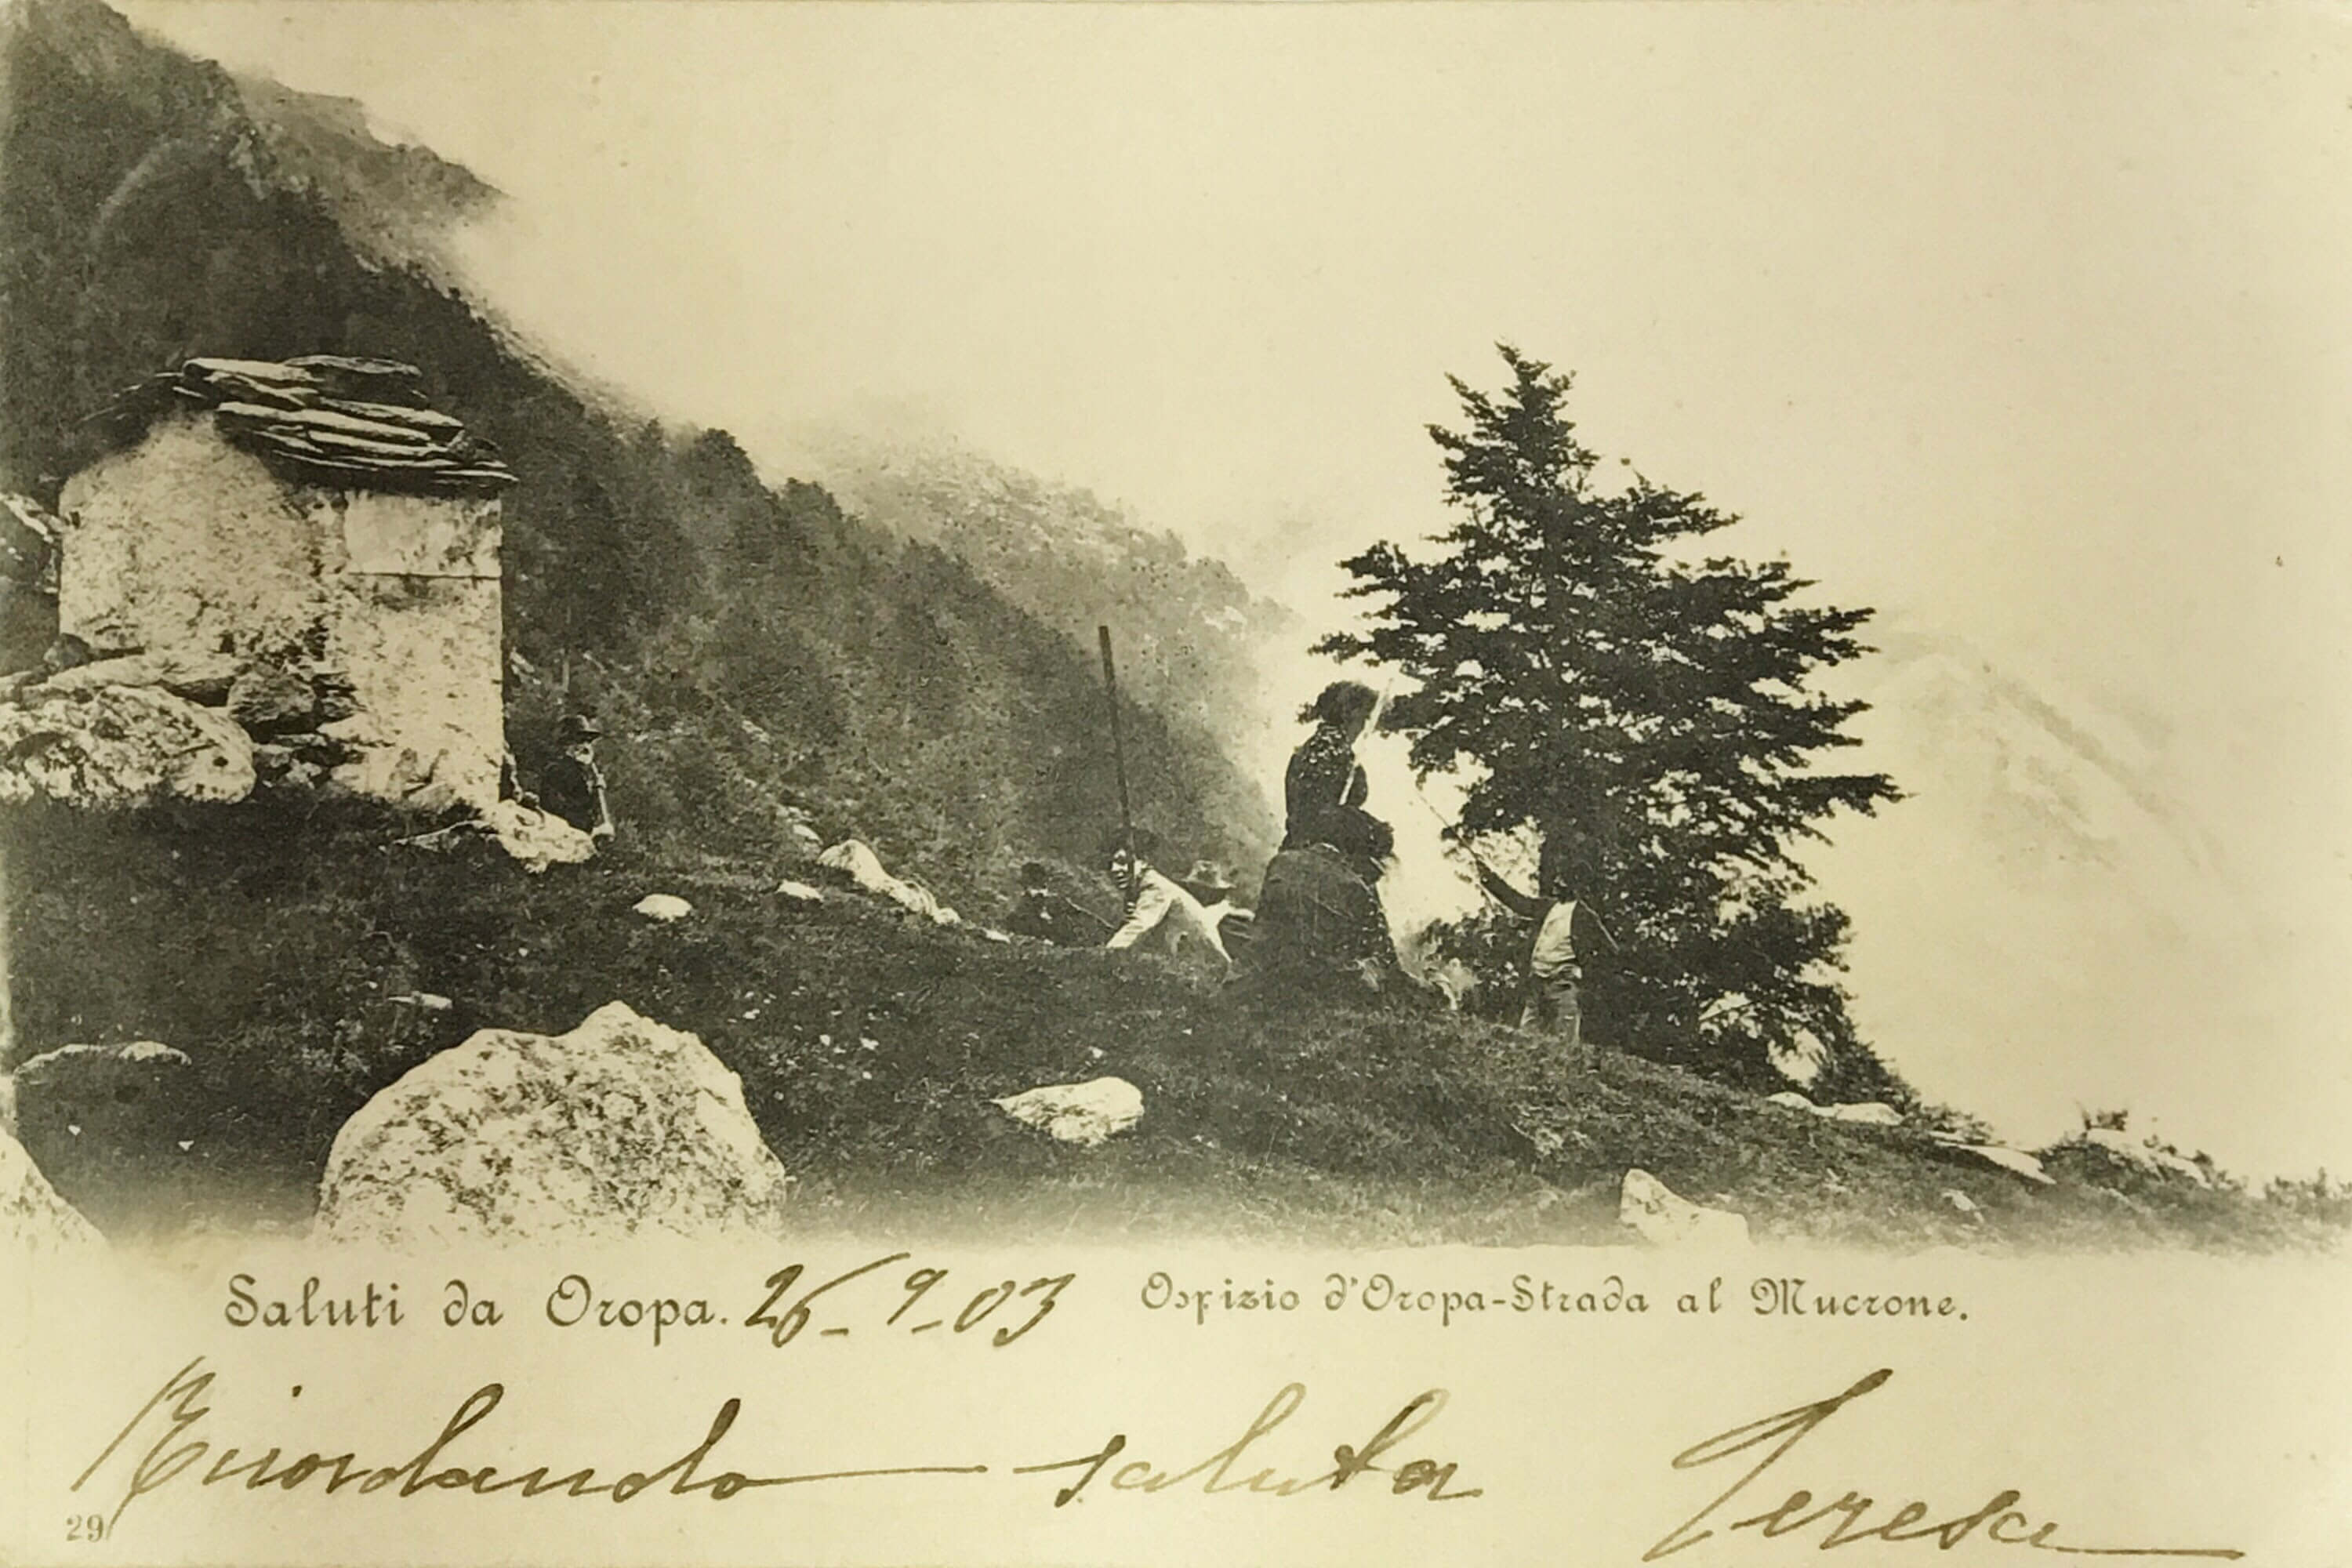 Saluti da Oropa. 26-9-03 Ospizio d'Oropa-Strada al Mucrone.
Ricordando saluta Teresa
29